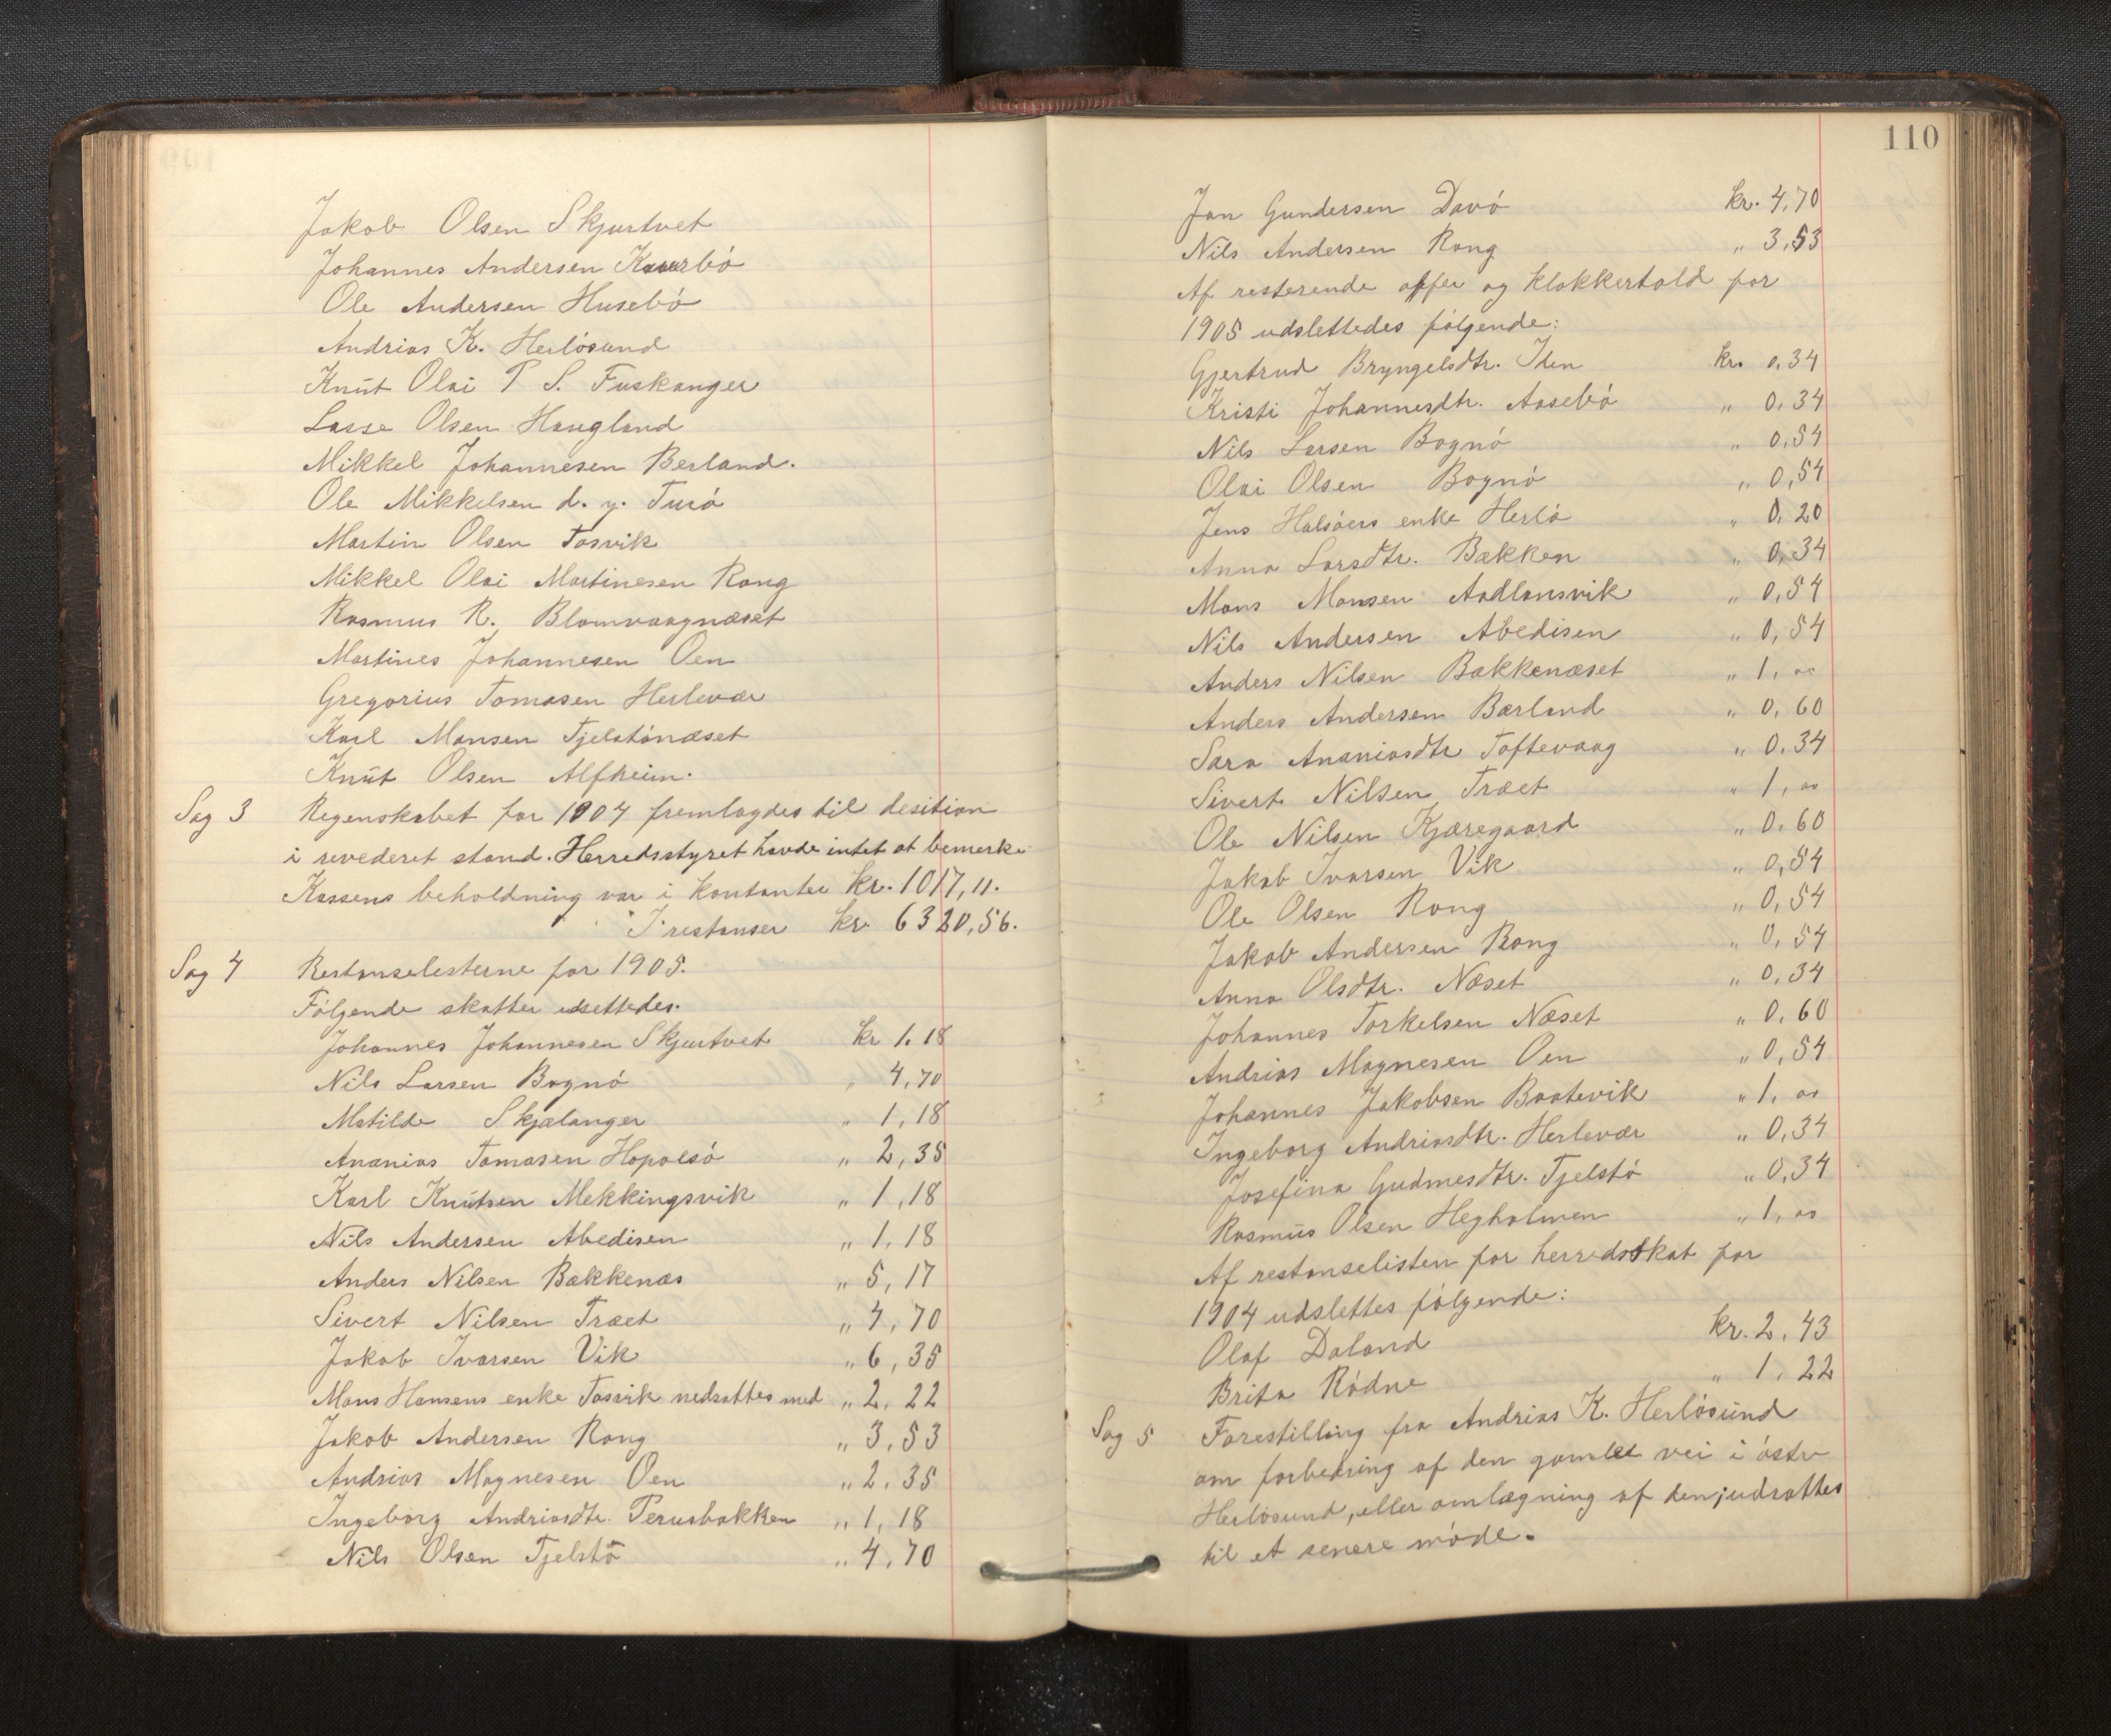 Jakob Olsen Skjurtvet
Johannes Andersen Kaurbø
Ole Andersen Husebø
Andrias K. Herløsund
Knut Olai P S. Fuskanger
Lasse Olsen Haugland
Mikkel Johannesen Berland.
Ole Mikkelsen d. y. Turø
Martin Olsen Tosvik
Mikkel Olai Martinesen Rong
Rasmus R. Blomvaagnæset
Martines Johannesen Oen
Gregorius Tomasen Herlevær
Karl Monsen Tjelstönæset
Knut Olsen Alfheim.
Sag 3 Regenskabet for 1904 fremlagdes til desition
i revederet stand. Herredsstyret havde intet at bemerke
Kassens beholdning var i kontanter kr. 1017,11.
I restanser kr. 6320,56.
Sag 4 Restanselisterne for 1905.
Følgende skatter udsettedes.
Johannes Johannesen Skjurtvet kr 1.18
Nils Larsen Bognø " 4,70
Matilde Skjælanger " 1,18
Ananias Tomasen Hopalsø " 2,35
Karl Knutsen Mekkingsvik " 1,18
Nils Andersen Abedisen " 1,18
Anders Nilsen Bækkenæs " 5,17
Sivert Nilsen Træet " 4,70
Jakob Ivarsen Vik " 6,35
Mons Hansens enke Tosvik nedsattes med " 2,22
Jakob Andersen Rong " 3,53
Andrias Magnesen Oen " 2,35
Ingeborg Andriasdtr. Perusbakken " 1,18
Nils Olsen Tjelstø " 4,70
110
Jan Gundersen Davø kr. 4,70
Nils Andersen Rong " 3,53
Af resterende offer og klokkertold for
1905 udslettedes følgende:
Gjertrud Bryngelsdtr. Iden kr. 0,34
Kristi Johannesdtr. Aasebø " 0,34
Nils Larsen Bognø " 0,54
Olai Olsen Bognø " 0,54
Jens Halsøers enke Herlø " 0,20
Anna Larsdtr. Bakken " 0,34
Mons Monsen Aadlansvik " 0,54
Nils Andersen Abedisen " 0,54
Anders Nilsen Bakkenæset " 1,00
Anders Andersen Bærland " 0,60
Sara Ananiasdtr Toftevaag " 0,34
Sivert Nilsen Træet " 1,00
Ole Nilsen Kjæregaard " 0,60
Jakob Ivarsen Vik " 0,54
Ole Olsen Rong " 0,54
Jakob Andersen Rong " 0,54
Anna Olsdtr. Næset " 0,34
Johannes Torkelsen Næset " 0,60
Andrias Magnesen Oen " 0,54
Johannes Jakobsen Baatevik " 1,00
Ingeborg Andriasdtr. Herlevær " 0,34
Josefina Gudmesdtr. Tjelstø " 0,34
Rasmus Olsen Hegholmen " 1,00
Af restanselisten for herredsskat for
1904 udslettes følgende:
Olaf Daland kr. 2,43
Brita Rødne " 1,22
Sag 5 Forestilling fra Andrias K. Herløsund
om forbedring af den gamle vei i østre
Herløsund, eller omlægning af den; udsattes
til et senere møde.